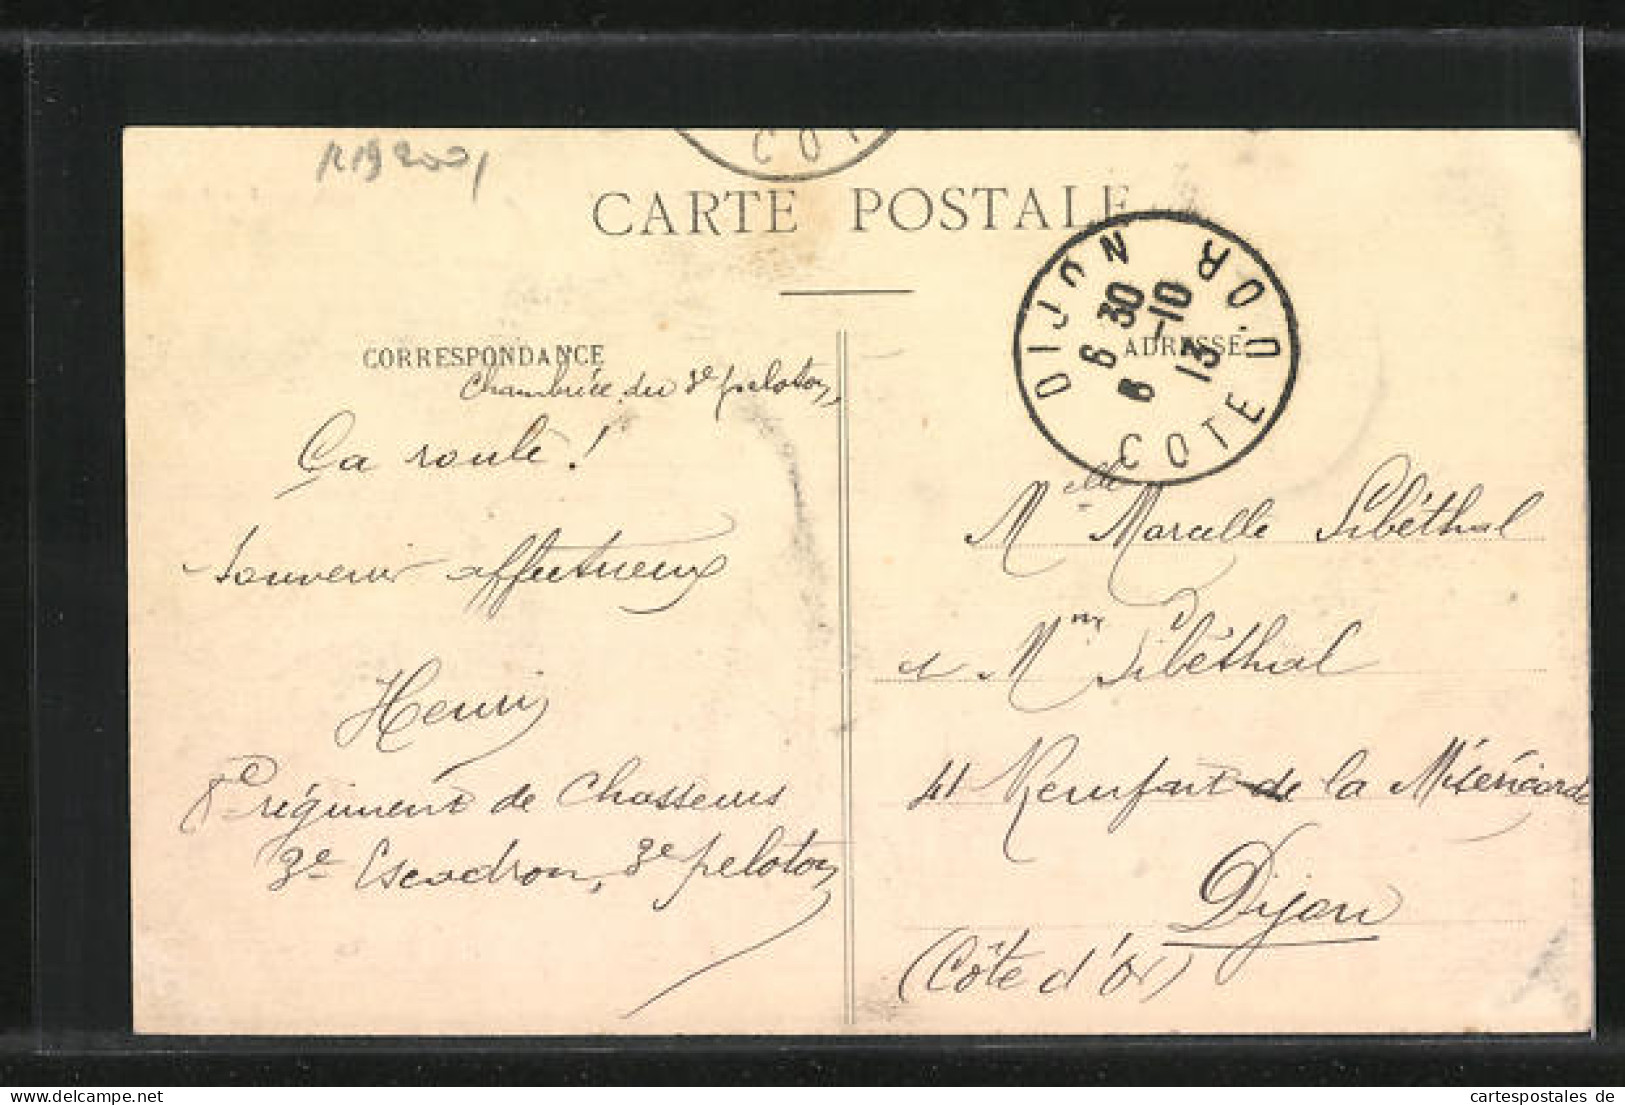 R19 2001
COT
CARTE POSTALE
DIJON
COTE D'OR
6 30
6 -10
13
CORRESPONDANCE
ADRESSE
Chambrée du 3e peloton,
Ça roule !
Souvenir affectueux
Henri
8e régiment de Chasseurs
3e Escadron, 3e peloton
Melle Marcelle Libéthal
et Mme Libéthal
41 Rempart de la Miséricorde
Dijon
(Côte d'Or)
www.cartespostales.de